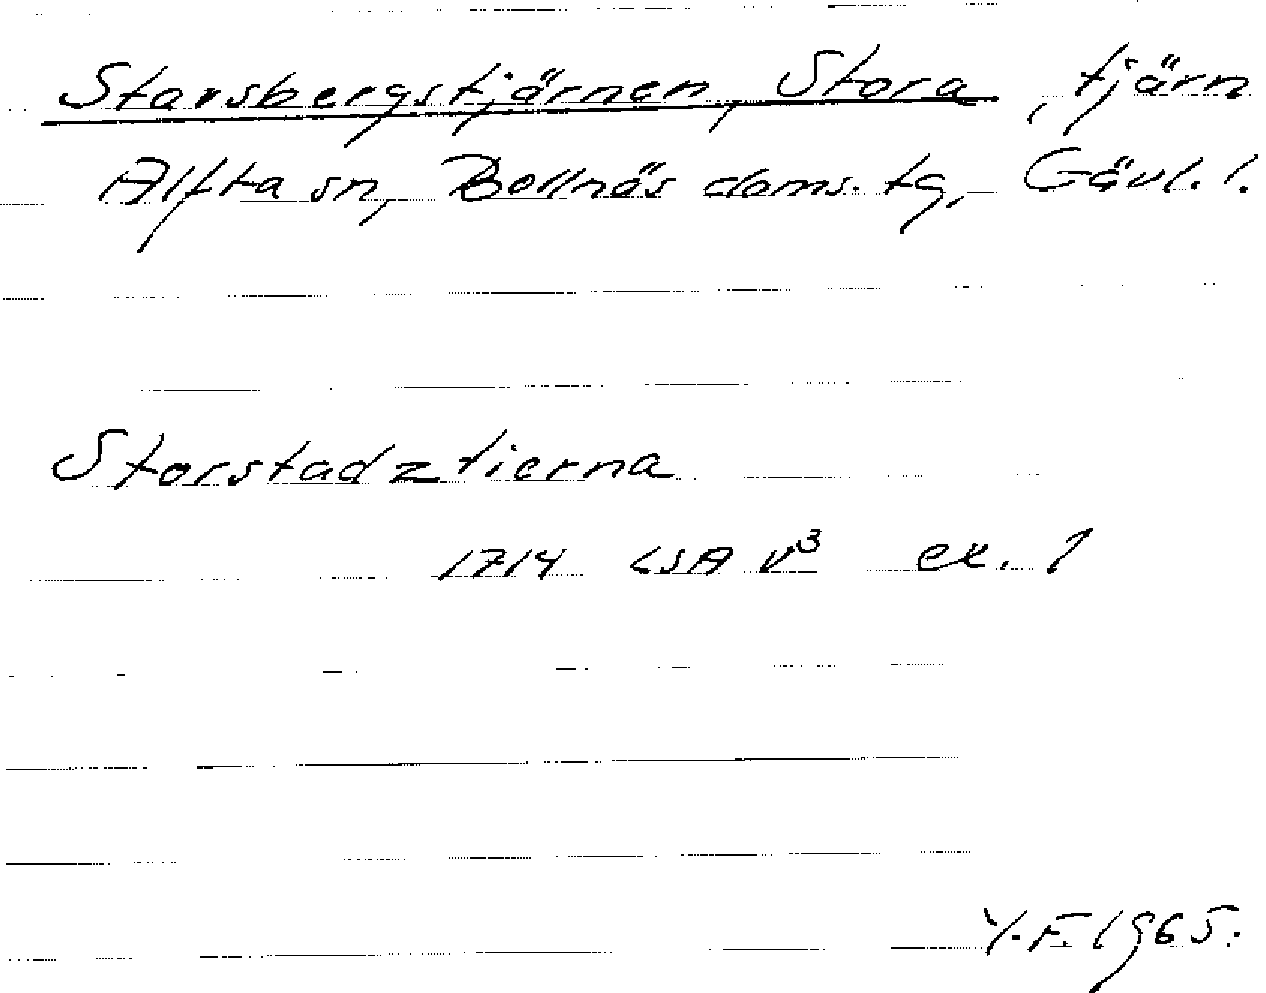 Stavsbergstjärnen, Stora, tjärn
Alfta sn, Bollnäs doms. tg, Gävl. l.
Storstadztierna
1714 LSA V³ ex. 1
Y.F. 1965.